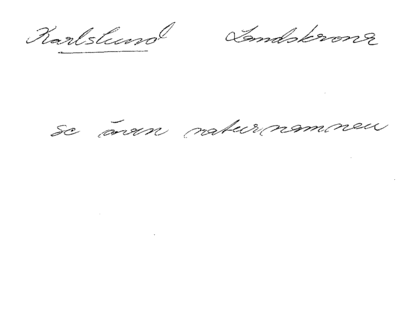 Karlslund Landskrona
se även naturnamnen